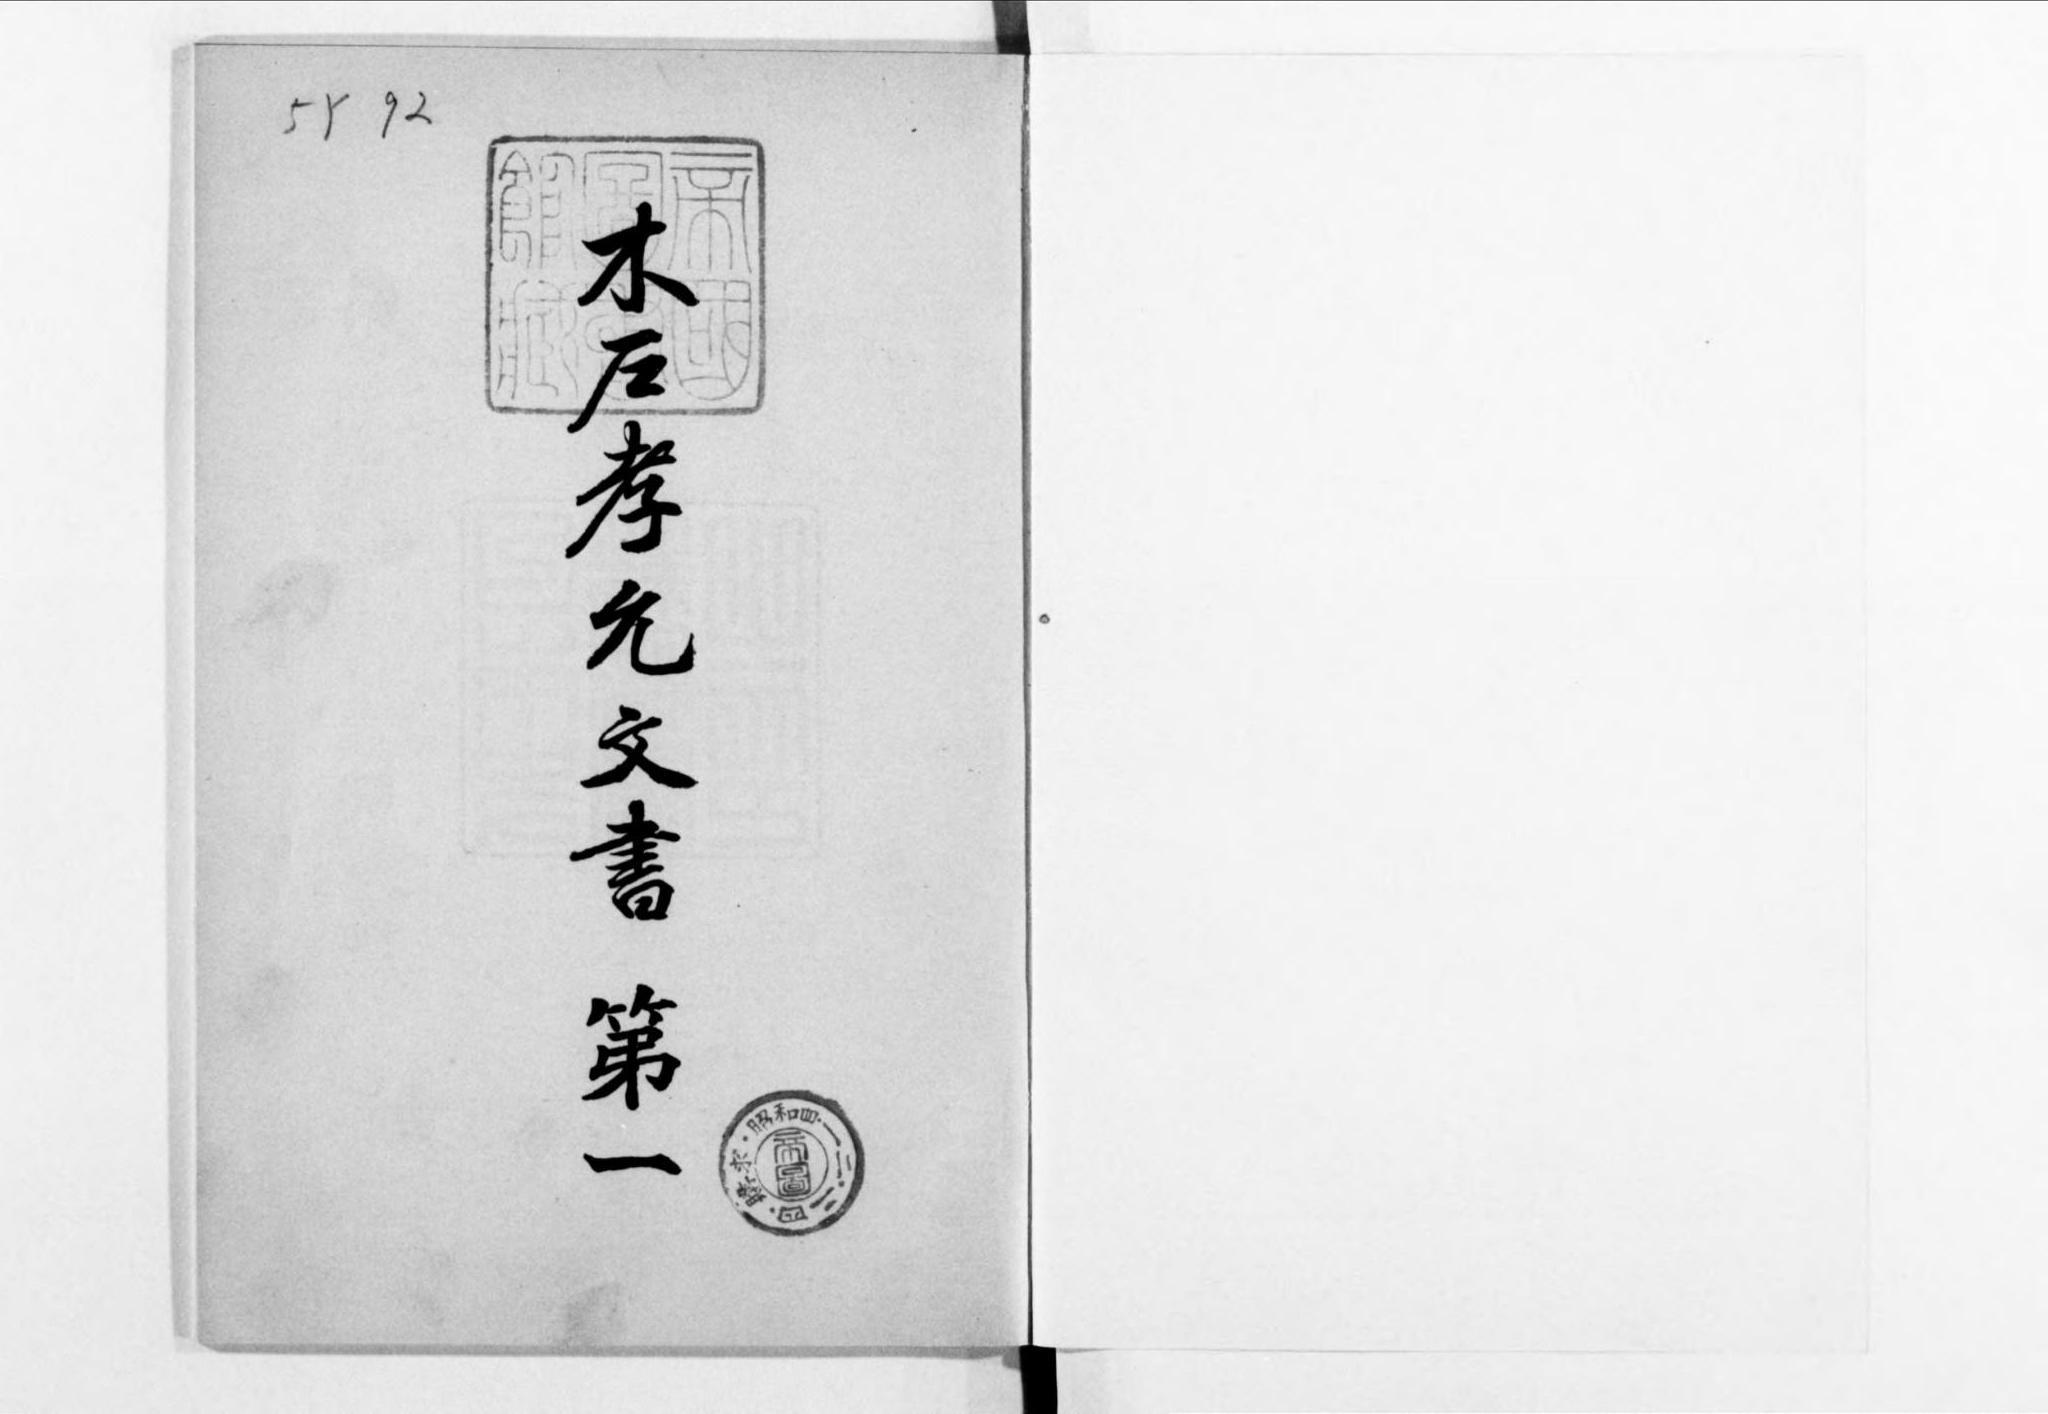 木戸孝允文書 第一
帝國
圖書
館藏
昭和四・一二・二四・購求・
帝圖